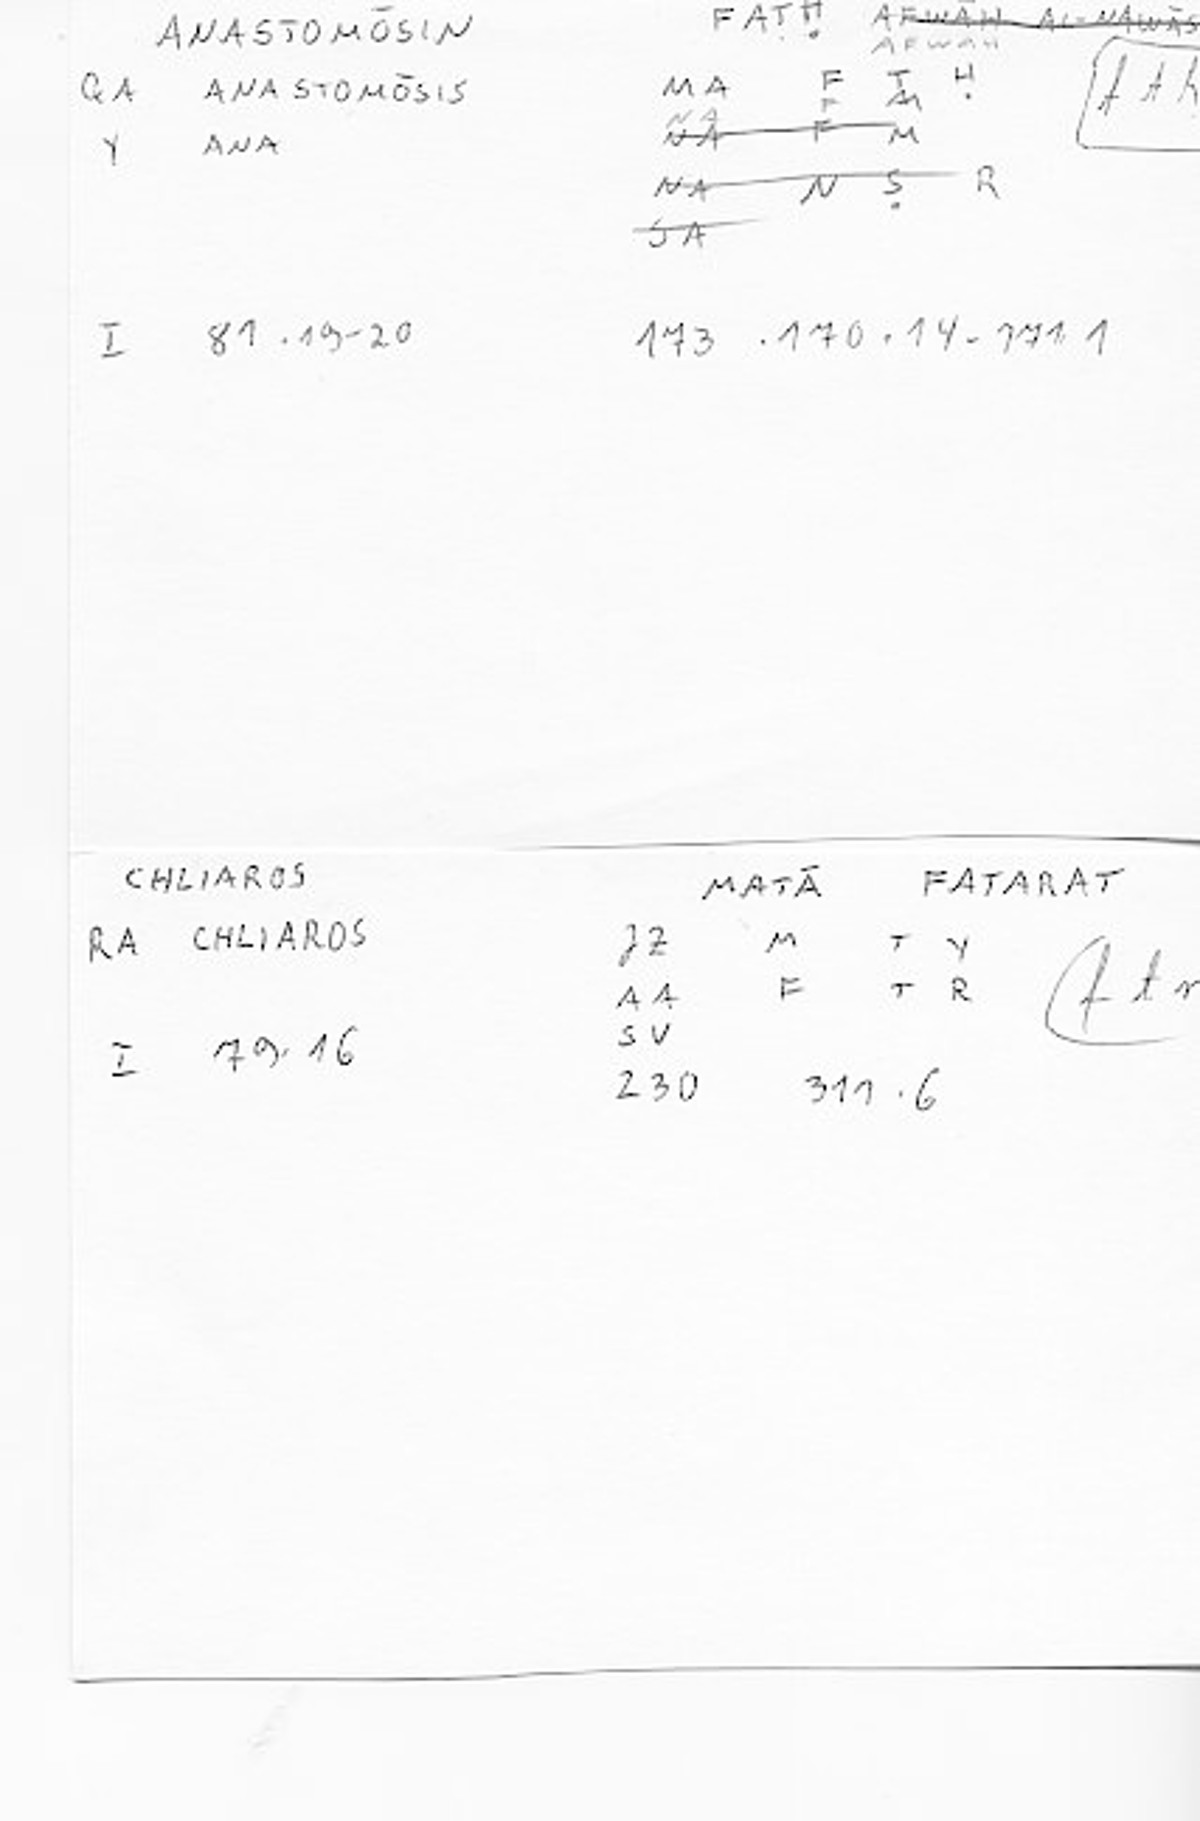 ANASTOMŌSIN FATḤ AFWĀH AL-NAWĀS
AFWAH
QA ANASTOMŌSIS MA F T Ḥ
F M
Y ANA NA F M
NA N Ṣ R
SA
I 81.19-20 173 .170.14-171 1
CHLIAROS MATĀ FATARAT
RA CHLIAROS JZ M T Y
AA F T R ftr
SV
I 79.16
230 311.6